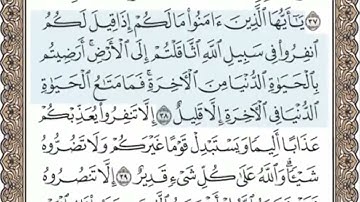 ٣٧ يَٰٓأَيُّهَا ٱلَّذِينَ ءَامَنُوا۟ مَا لَكُمْ إِذَا قِيلَ لَكُمُ
ٱنفِرُوا۟ فِى سَبِيلِ ٱللَّهِ ٱثَّاقَلْتُمْ إِلَى ٱلْأَرْضِ ۚ أَرَضِيتُم
بِٱلْحَيَوٰةِ ٱلدُّنْيَا مِنَ ٱلْءَاخِرَةِ ۚ فَمَا مَتَٰعُ ٱلْحَيَوٰةِ
ٱلدُّنْيَا فِى ٱلْءَاخِرَةِ إِلَّا قَلِيلٌ ٣٨ إِلَّا تَنفِرُوا۟ يُعَذِّبْكُمْ
عَذَابًا أَلِيمًا وَيَسْتَبْدِلْ قَوْمًا غَيْرَكُمْ وَلَا تَضُرُّوهُ
شَيْـًٔا ۗ وَٱللَّهُ عَلَىٰ كُلِّ شَىْءٍ قَدِيرٌ ٣٩ إِلَّا تَنصُرُوهُ